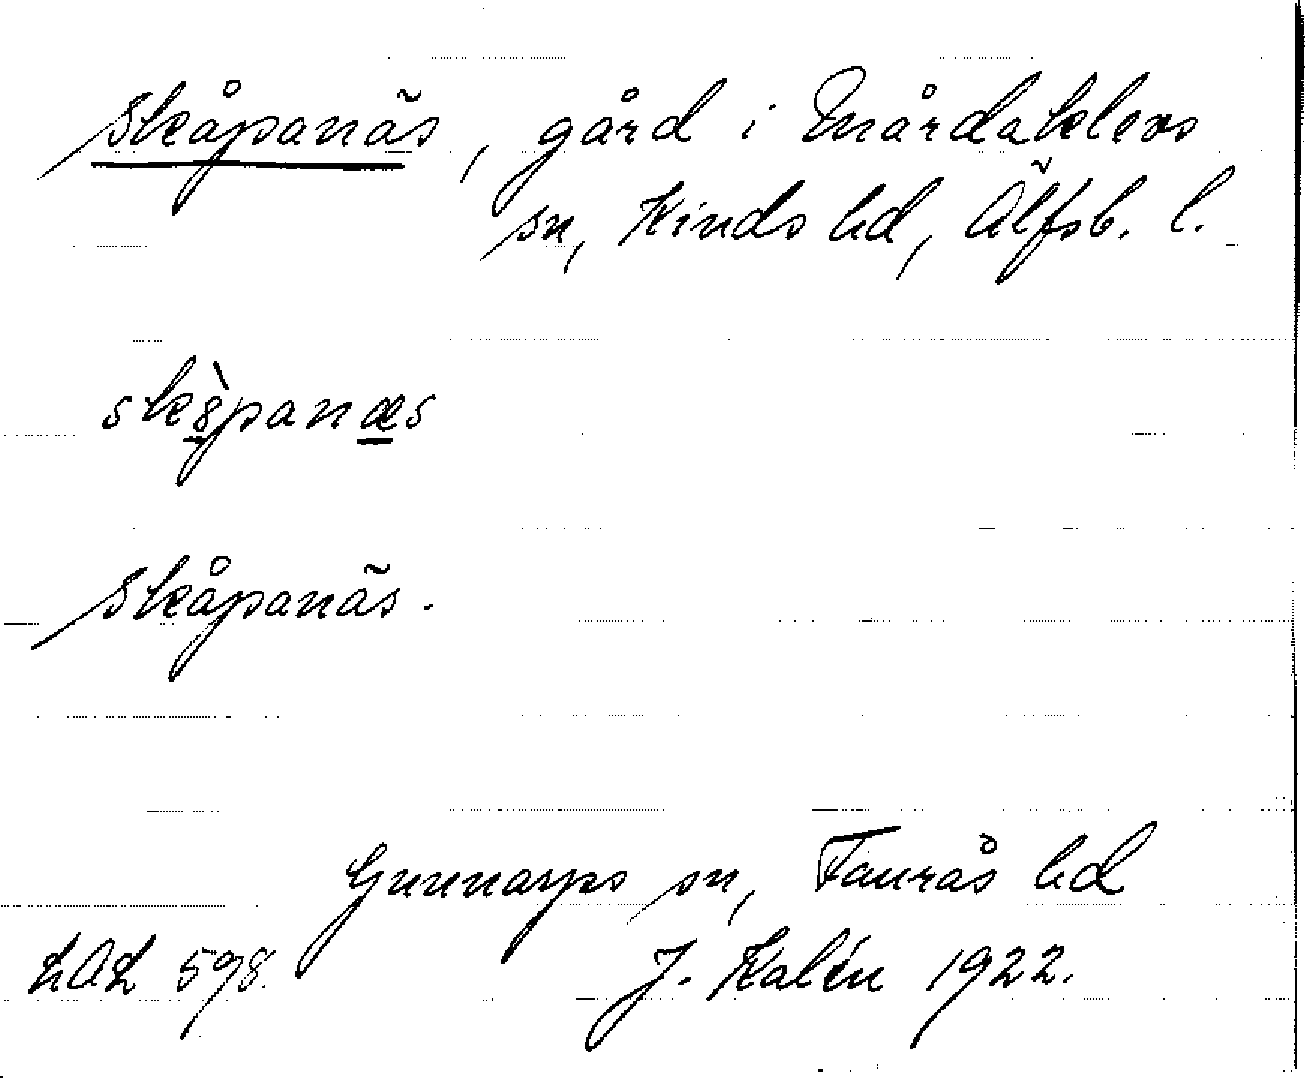 Skåpanäs, gård i Mårdaklevs
sn, Kinds hd, Älfsb. l.
Skåpanäs.
Gunnarps sn, Faurås hd
LAL 598. J. Kalén 1922.